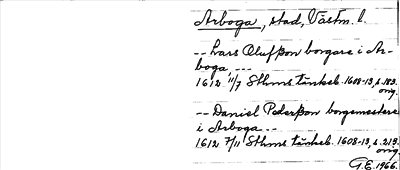 Arboga, stad, Västm. l.
-- Lars Olufsson borgare i Ar-
boga ---
1612 11/7 Sthms tänkeb. 1608-13, s. 183.
orig.
-- Daniel Pedersson borgmestere
i Arboga --
1612 7/11 Sthms tänkeb. 1608-13, s. 219.
orig.
G.E. 1966.